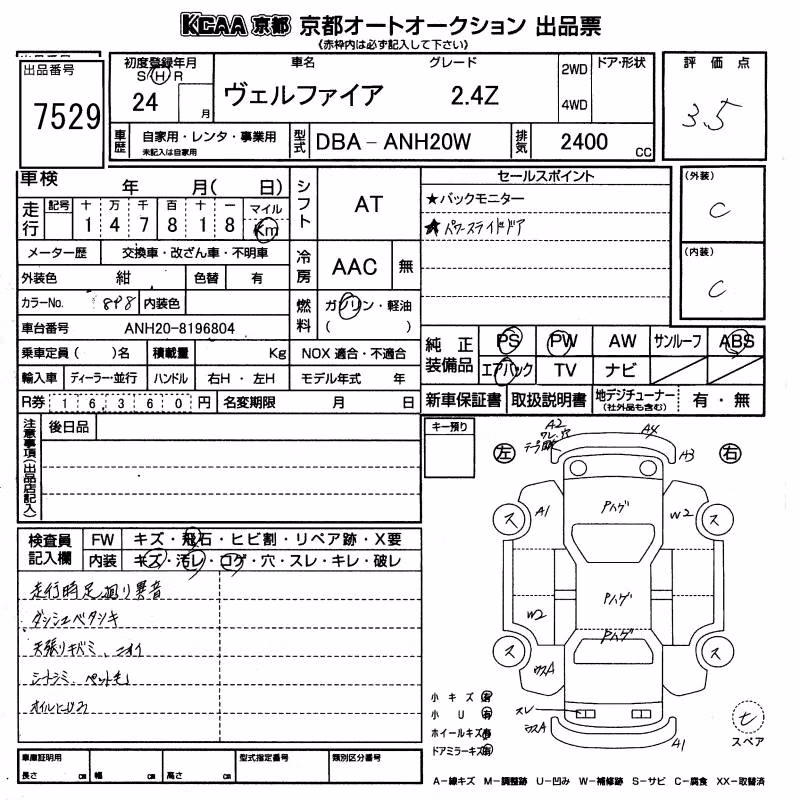 KCAA 京都 京都オートオークション 出品票
《赤枠内は必ず記入して下さい》
出品番号
7529
初度登録年月
S H R
24 月
車名
ヴェルファイア
グレード
2.4Z
2WD
4WD
ドア・形状
評価点
3.5
車歴
自家用・レンタ・事業用
未記入は自家用
型式
DBA-ANH20W
排気
2400 CC
車検 年 月( 日)
走行
記号 十 万 千 百 十 一 マイル
1 4 7 8 1 8 Km
シフト
AT
セールスポイント
★バックモニター
★パワースライドドア
(外装)
C
(内装)
C
メーター歴 交換車・改ざん車・不明車
外装色 紺 色替 有
冷房
AAC 無
カラーNo. 898 内装色
燃料
ガソリン・軽油
( )
車台番号 ANH20-8196804
乗車定員( )名 積載量 Kg NOX適合・不適合
輸入車 ディーラー・並行 ハンドル 右H・左H モデル年式 年
R券 16360円 名変期限 月 日
純正装備品
PS PW AW サンルーフ ABS
エアバック TV ナビ
新車保証書 取扱説明書 地デジチューナー(社外品も含む) 有・無
注意事項(出品店記入)
後日品
キー預り
検査員記入欄
FW キズ・飛石・ヒビ割・リペア跡・X要
内装 キズ・汚レ・コゲ・穴・スレ・キレ・破レ
走行時足廻り異音
ダッシュベタツキ
天張りキバミ、ニオイ
シートシミ、ペット毛
オイルにじみ
左
右
A2
ワレ、穴
A4
A3
A1
W2
Pハゲ
ス
ス
W2
Pハゲ
Pハゲ
ス
ス
ウスA
スレ
ウスA
A1
小キズ 有
小U 有
ホイールキズ 有
ドアミラーキズ 有
七
スペア
車庫証明用
長さ cm 幅 cm 高さ cm
型式指定番号
類別区分番号
A-線キズ M-調整跡 U-凹み W-補修跡 S-サビ C-腐食 XX-取替済